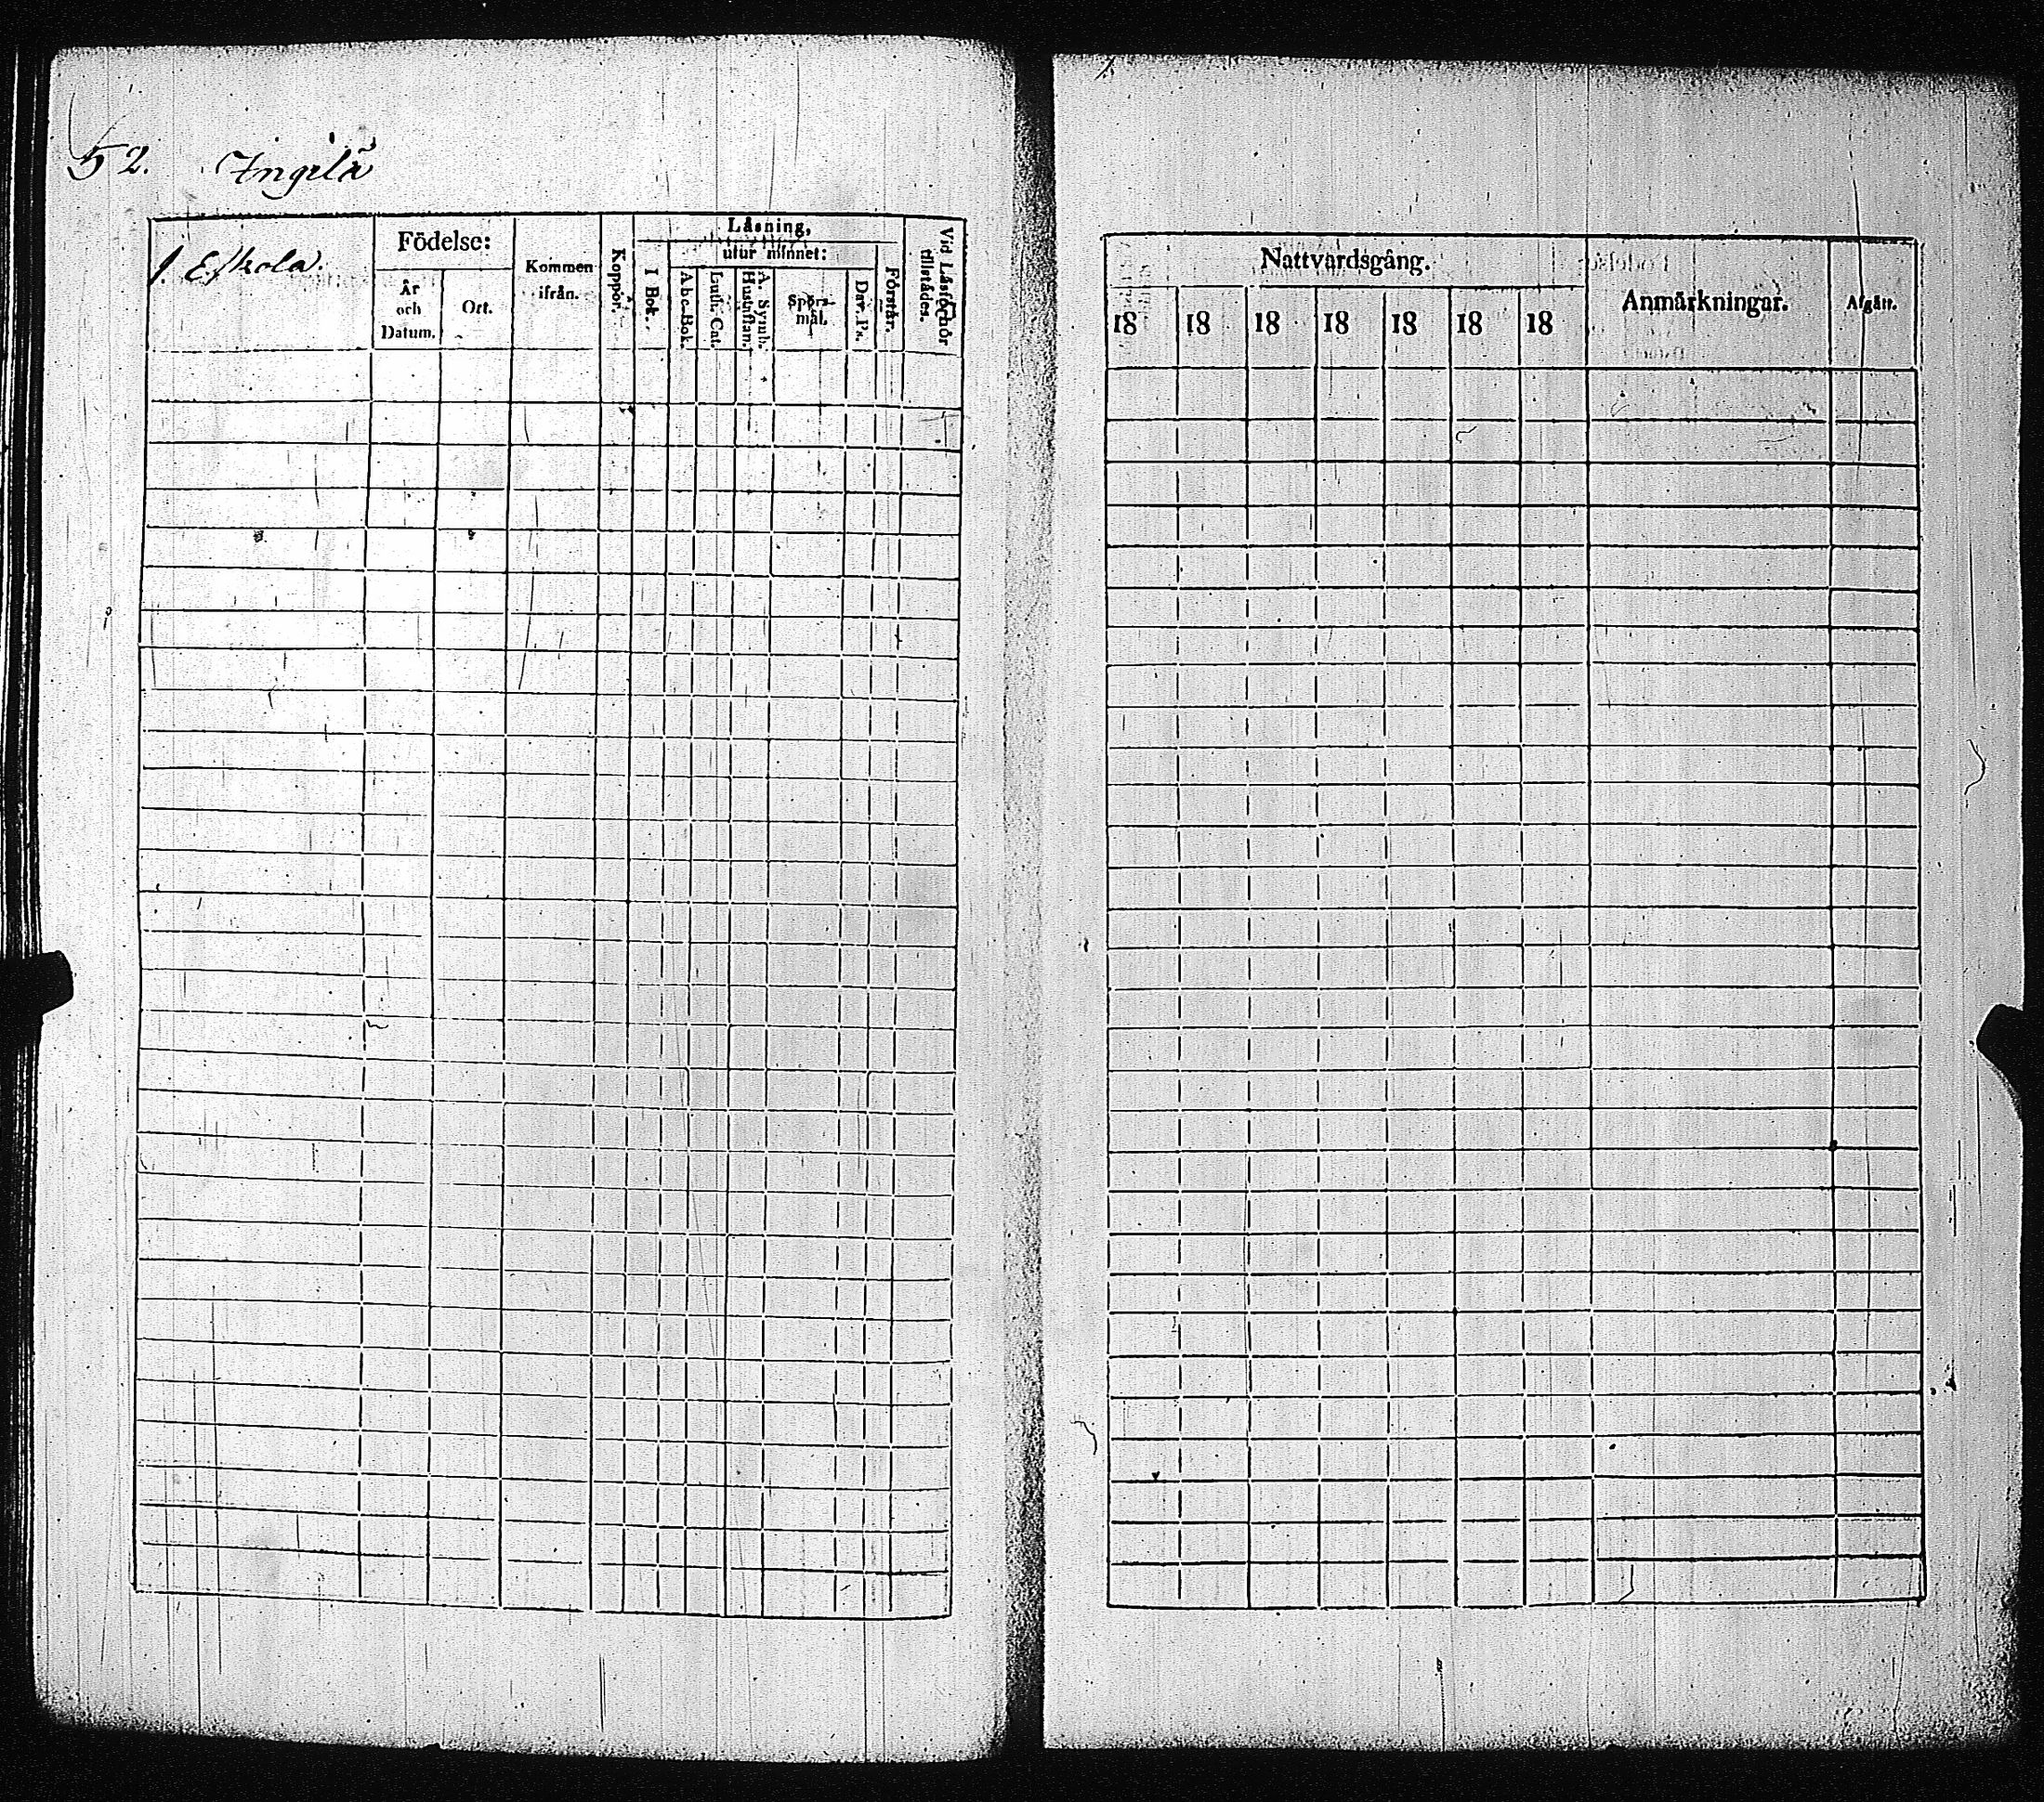 52. Ingilä
1. Eskola.
Födelse:
År
och
Datum.
Ort.
Kommen
ifrån.
Koppor.
Läsning,
I Bok.
utur minnet:
Abc-Bok.
Luth. Cat.
Hustaflan.
A. Symb.
Spörs-
mål.
Dav. Ps.
Förstår.
Vid Läsförhör
tillstädes.
Nattvardsgång.
18 18 18 18 18 18 18
Anmärkningar.
Afgått.